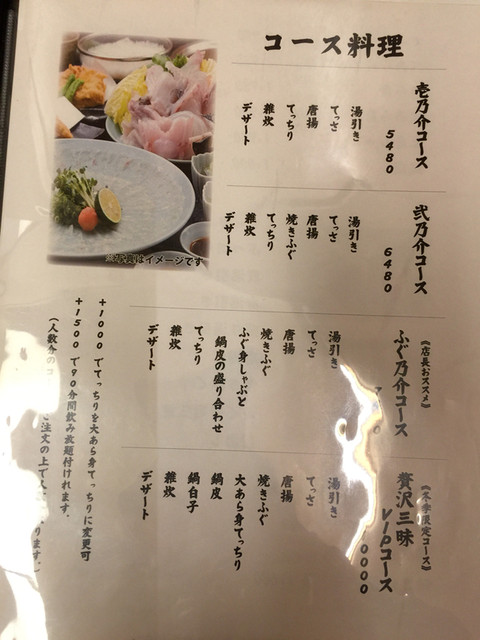 コース料理
壱乃介コース
5480
湯引き
てっさ
唐揚
てっちり
雑炊
デザート
弐乃介コース
6480
湯引き
てっさ
唐揚
焼きふぐ
てっちり
雑炊
デザート
《店長おススメ》
ふぐ乃介コース
湯引き
てっさ
唐揚
焼きふぐ
ふぐ身しゃぶと
鍋皮の盛り合わせ
てっちり
雑炊
デザート
《冬季限定コース》
贅沢三昧
VIPコース
0000
湯引き
てっさ
唐揚
焼きふぐ
大あら身てっちり
鍋皮
鍋白子
雑炊
デザート
※写真はイメージです
+1000 でてっちりを大あら身てっちりに変更可
+1500 で90分間飲み放題付けれます。
(人数分の
ご注文の上で
ります。)